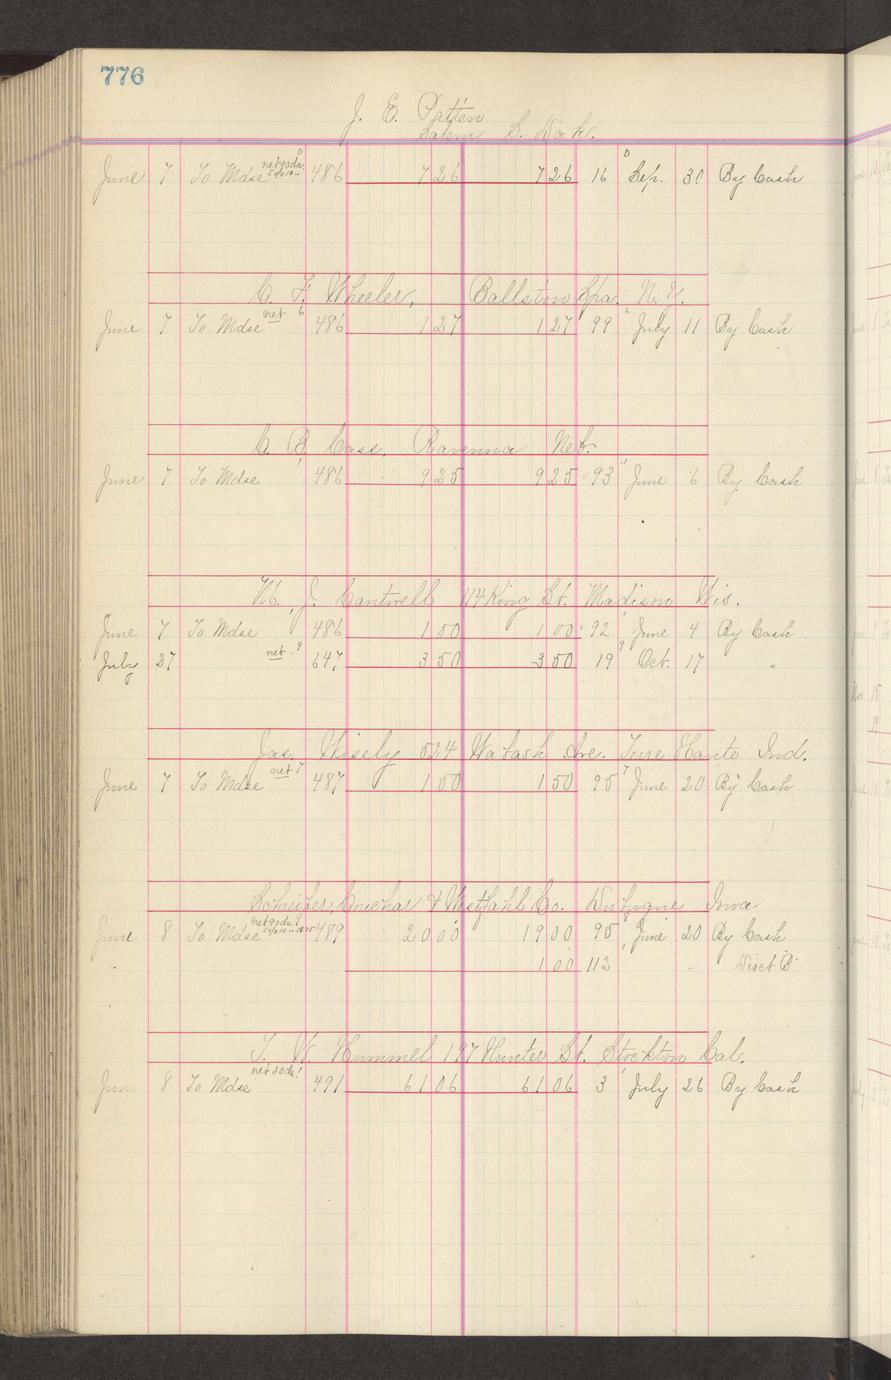 776
J. E. Patten
Salem S. Dak.
June 7 To Mdse net 90 da 486 7 26 7 26 16 Sep. 30 By Cash
C. F. Wheeler, Ballston Spa. N. Y.
June 7 To Mdse net 6 486 1 27 1 27 99 July 11 By Cash
C. B. Cass. Ravenna Neb.
June 7 To Mdse 486 9 25 9 25 93 June 6 By Cash
J. Cantwell 114 King St. Madison Wis.
June 7 To Mdse 486 1 00 1 00 92 June 4 By Cash
July 27 net 9 647 3 50 3 50 19 Oct. 17 "
Jas. Wisely 524 Wabash Ave. Terre Haute Ind.
June 7 To Mdse net 7 487 1 50 1 50 95 June 20 By Cash
& Westfahl Co. Dubuque Iowa
June 8 To Mdse net 90 da 489 20 00 19 00 95 June 20 By Cash
1 00 112 Disct B
T. W. Hummel 197 Hunter St. Stockton Cal.
June 8 To Mdse net 30 da 491 61 06 61 06 3 July 26 By Cash